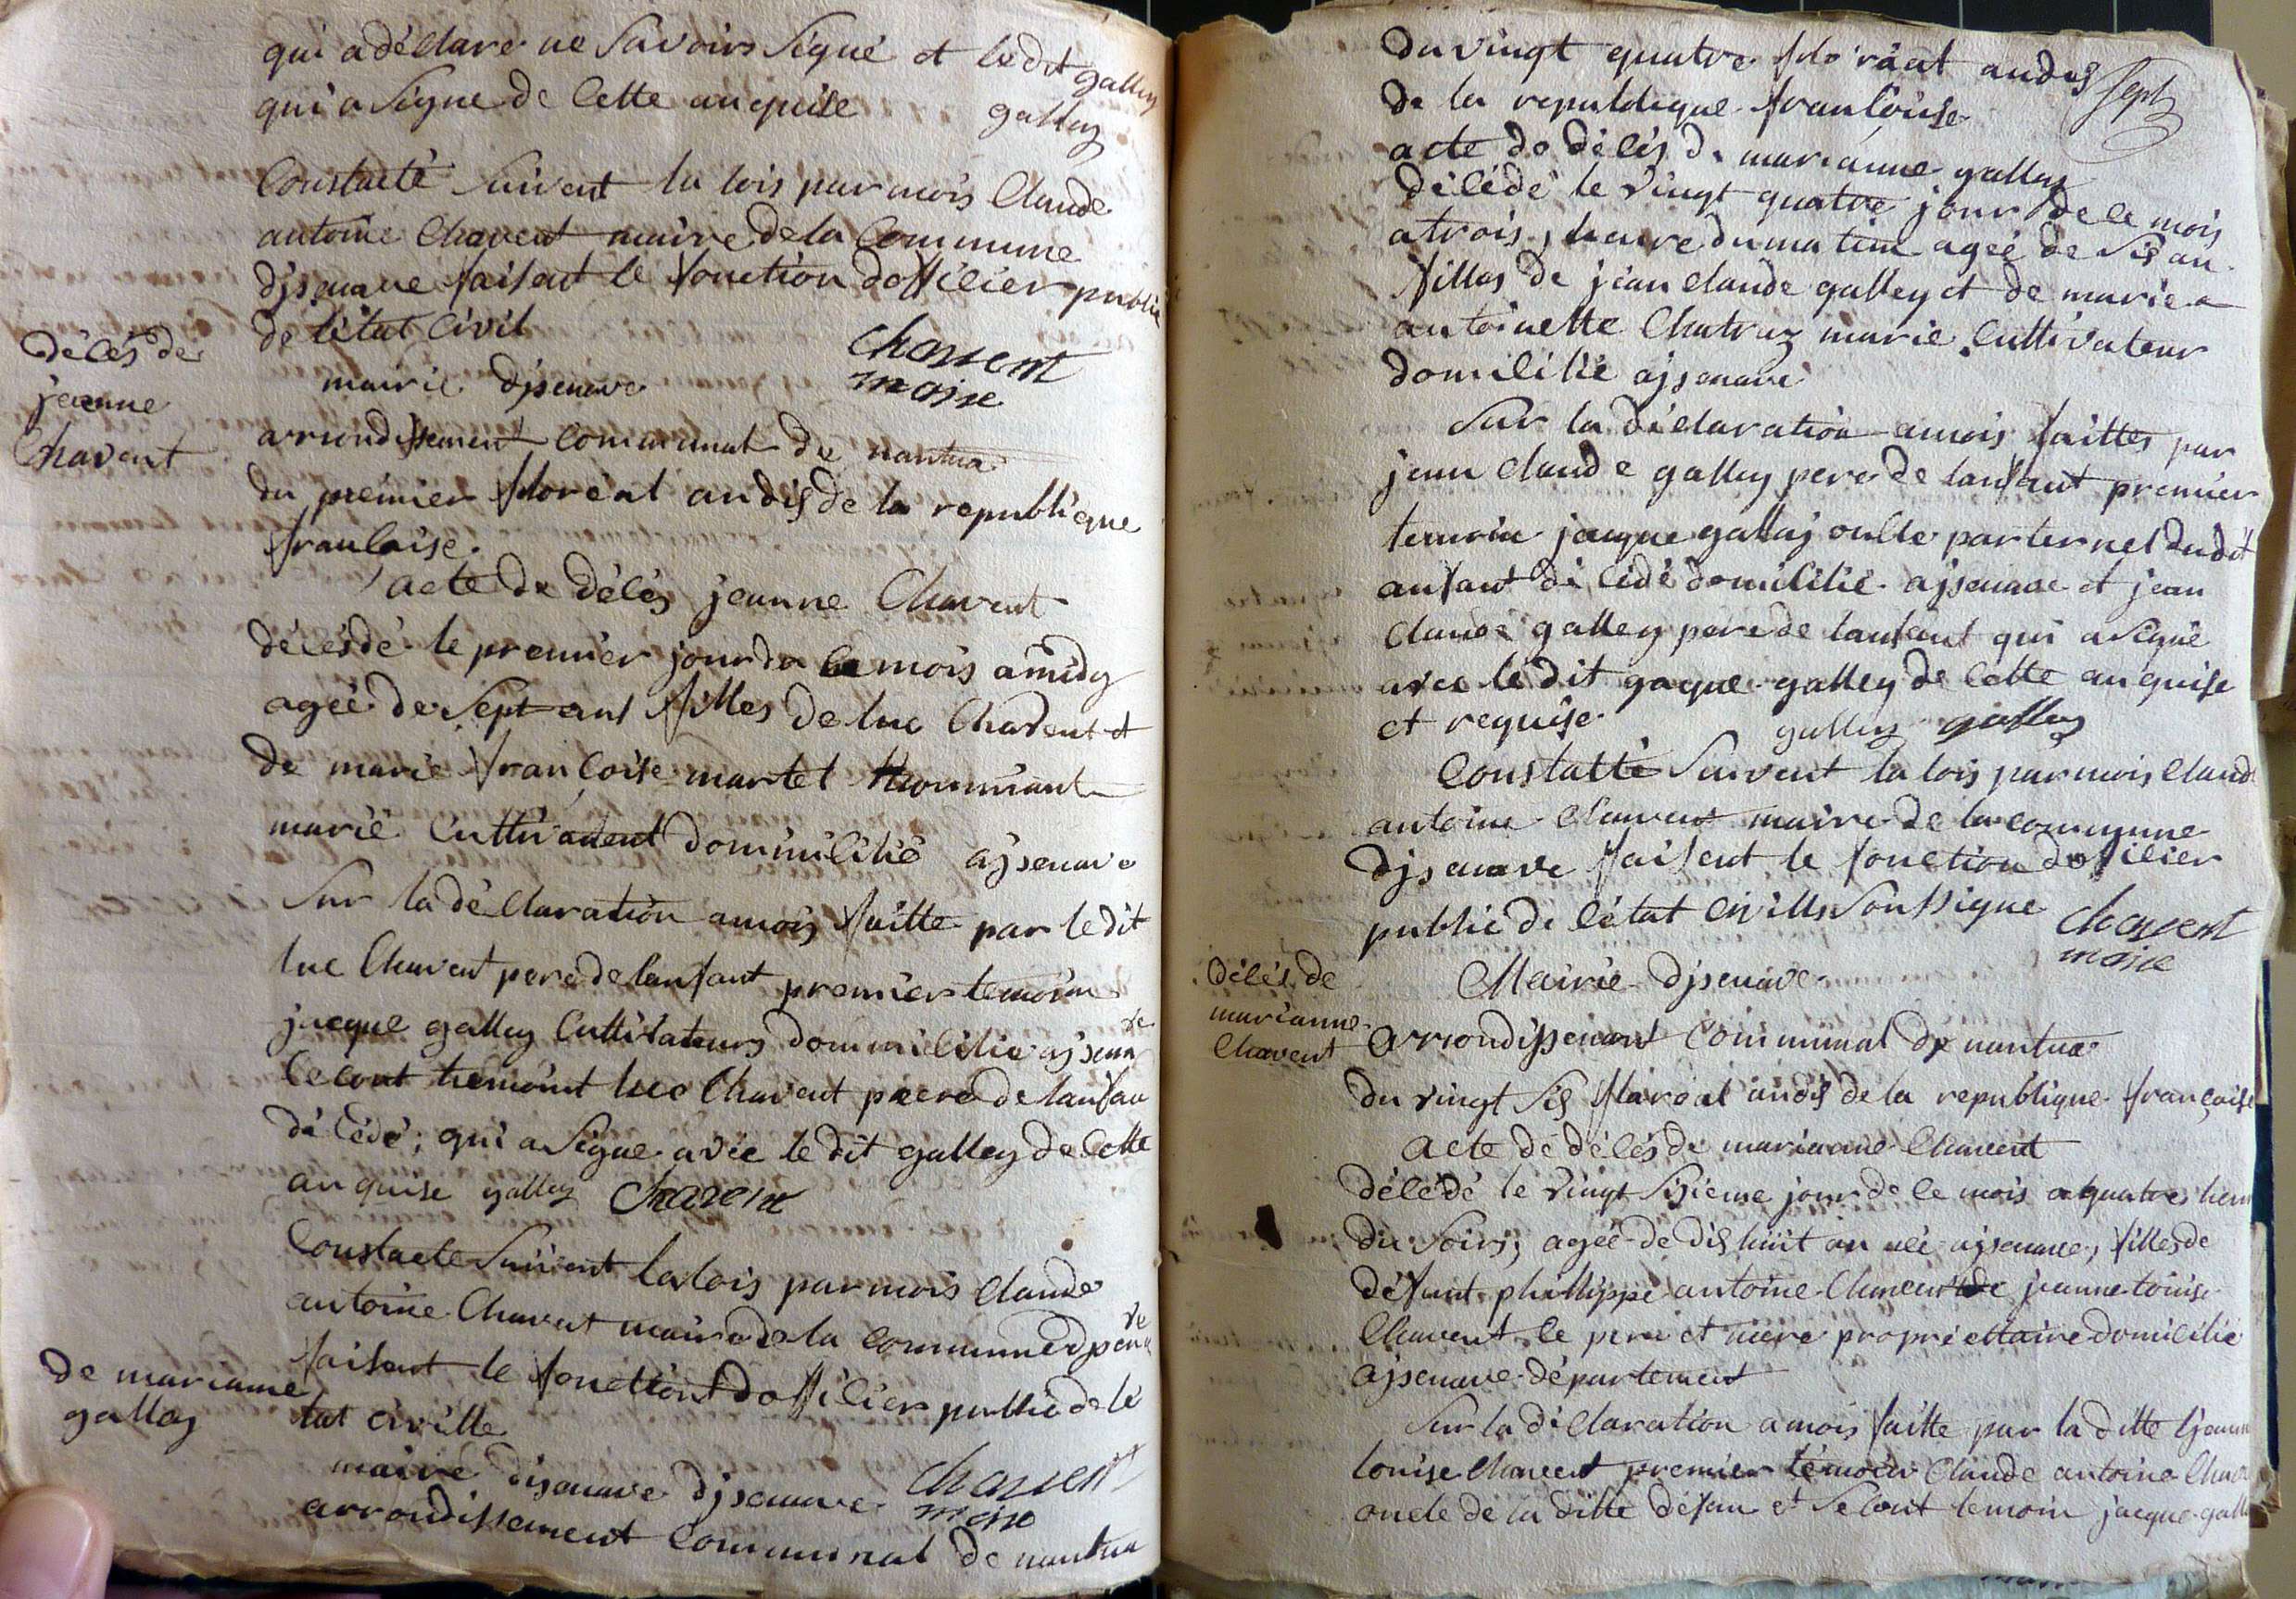 qui a déclare ne Savoirs Signé et ledit galley
qui a Signe de cette anquise galley
Constacté Suivent la lois par mois Claude
antoine Chavent maire de la Commune
djsenave faisent le fonction dofficier public
de l'état Civil
Chavent
maire
décés de
jeanne
Chavent
mairie djsenave
arrondissement communal de nantua
du premier floreal an dis de la republique
francaise.
acte de décés jeanne Chavent
décésdé le premier jour de ce mois a midy
ageé de Sept ans filles de luc Chavent et
de marie françoise martel
marié Cultivateur dommicilié ajsenave
Sur la déclaration a mois faitte par le dit
luc Chavent pere de lanfant premier temoin
jacque galley Cultivateurs dommicilie ajsenave
Second temoint luc Chavent pere de lanfan
décédé; qui a Signe avec le dit galley de cette
anquise galley Chavent
Constacte Suivent la lois par mois Claude
antoine Chavent maire de la commune djsenave
faisent le fonctiont dofficier public de lé
tat civille
Chavent
maire
de marianne
galley
mairie disenave djsenave
arrondissement Communal de nantua
du vingt quatre floréal an dis
Sept
de la republique francoise
acte de décés de marianne galley
décédé le vingt quatre jour de ce mois
a trois heure du matin ageé de Sis an
filles de jean claude galley et de marie
antoinette Chatraz marie Cultivateur
domicilié ajsenave
Sur la déclaration a mois faittes par
jean claude galley pere de lanfant premier
temoin jacque galley oncle parternel dudit
anfant décédé domicilié ajsenave et jean
claude galley pere de lanfant qui a Signé
avec le dit gaque galley de cette anquise
et requise galley galley
Constatté Suivent la lois par mois claude
antoine Chavent maire de la commune
djsenave faisent le fonction dofficier
public de l'état civille Soussigne
Chavent
maire
décés de
marianne
Chavent
Mairie djsenave
arrondissement Communal de nantua
du vingt Sis flaréal an dis de la republique françaisse
acte de décés de marianne Chavent
décédé le vingt Sisieme jour de ce mois a quatre heur
du Soirs; ageé de dis huit an né ajsenave, filles de
défunt phillippe antoine Chavent de jeanne louise
Chavent le pere et mere propriettaire domicilié
ajsenave département
Sur la déclaration a mois faitte par la ditte jeanne
louise Chavent premier temoin Claude antoine Chave
oncle de la ditte défun et Second temoin jacque galle